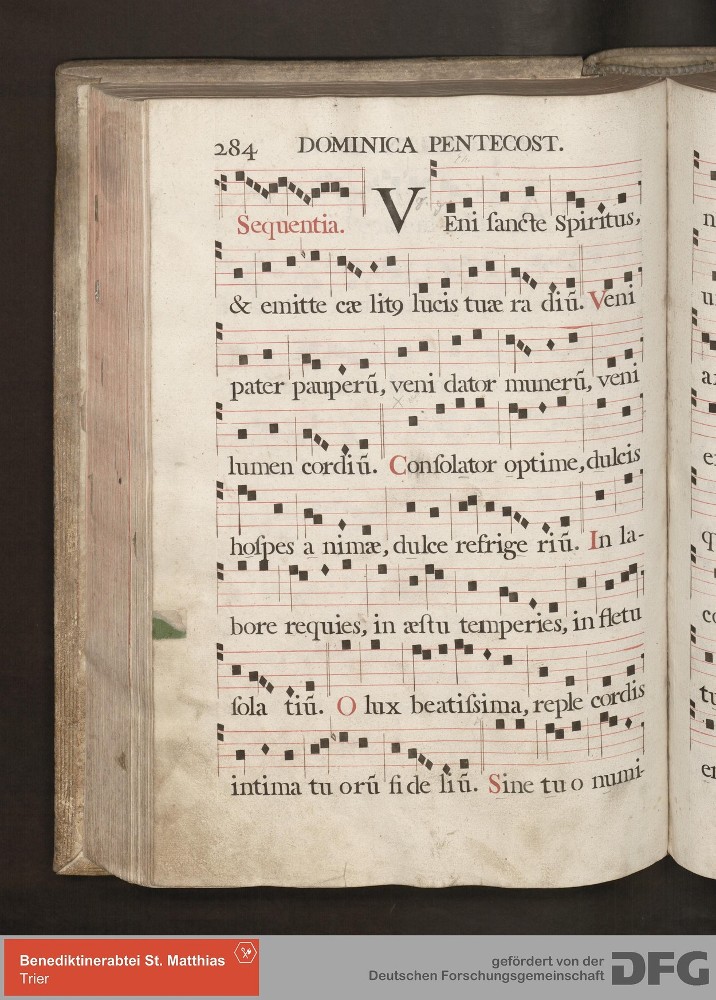 284 DOMINICA PENTECOST.
Sequentia. VEni ſancte Spiritus,
& emitte cæ lit9 lucis tuæ ra diū. Veni
pater pauperū, veni dator munerū, veni
lumen cordiū. Conſolator optime, dulcis
hoſpes a nimæ, dulce refrige riū. In la-
bore requies, in æſtu temperies, in fletu
ſola tiū. O lux beatiſsima, reple cordis
intima tu orū fi de liū. Sine tu o numi-
Benediktinerabtei St. Matthias
Trier
gefördert von der
Deutschen Forschungsgemeinschaft
DFG